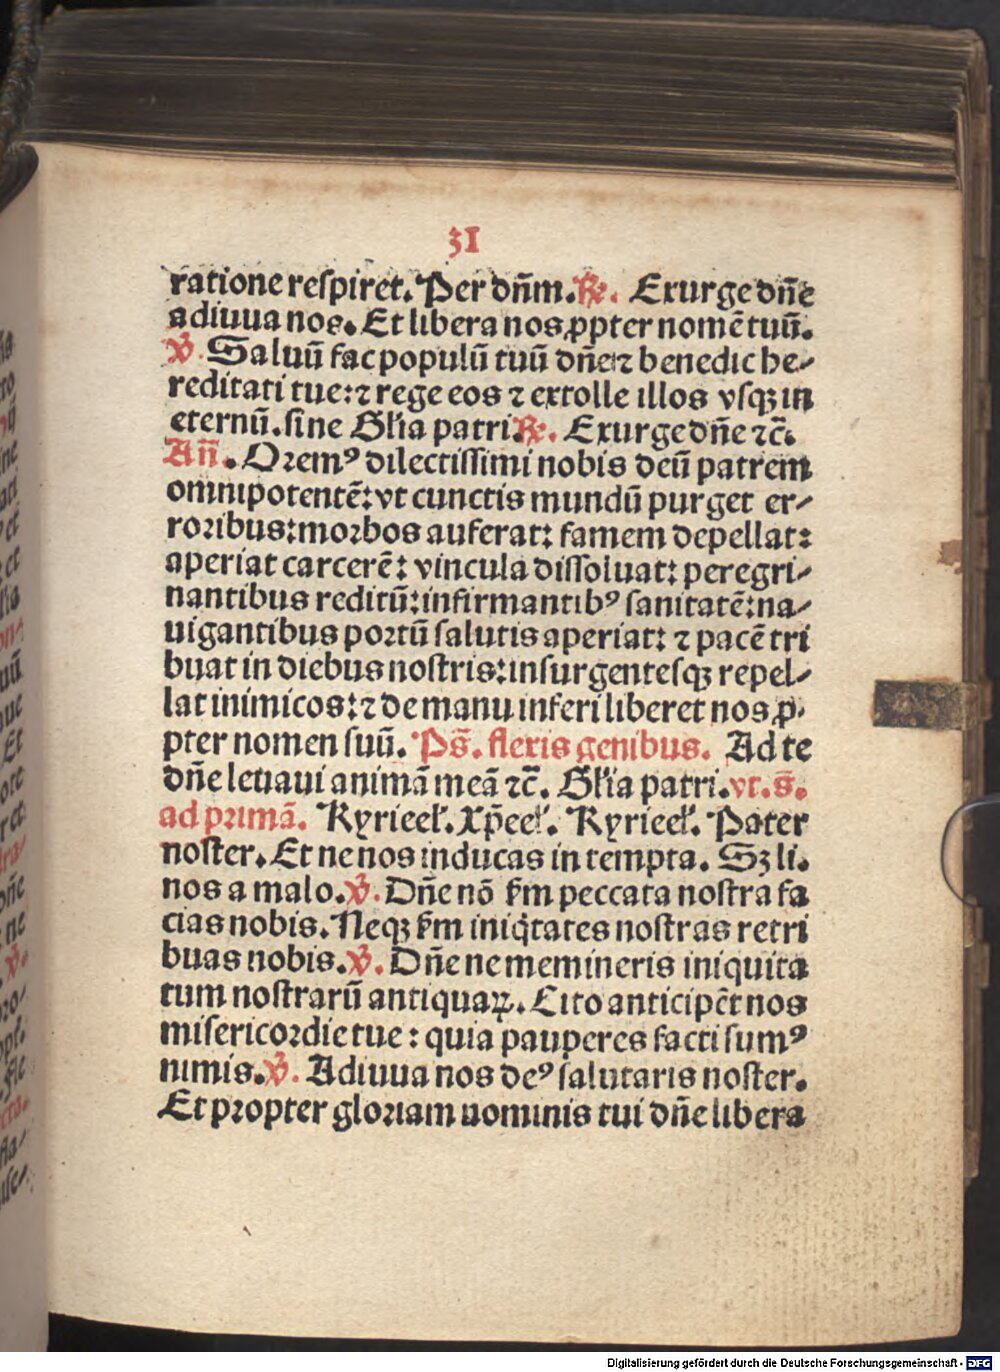 31
ratione respiret. Per dñm. ℟. Exurge dñe
adiuua nos. Et libera nos ꝓpter nomē tuū.
℣. Saluū fac populū tuū dñe: ⁊ benedic he-
reditati tue: ⁊ rege eos ⁊ extolle illos vsqꝫ in
eternū. sine Gl'ia patri ℟. Exurge dñe ⁊c̄.
Añ. Oremꝰ dilectissimi nobis deū patrem
omnipotentē: vt cunctis mundū purget er-
roribus: morbos auferat: famem depellat:
aperiat carcerē: vincula dissoluat: peregri-
nantibus reditū: infirmantibꝰ sanitatē: na-
uigantibus portū salutis aperiat: ⁊ pacē tri
buat in diebus nostris: insurgentesqꝫ repel-
lat inimicos: ⁊ de manu inferi liberet nos ꝓ-
pter nomen suū. Ps̄. flexis genibus. Ad te
dñe leuaui animā meā ⁊c̄. Gl'ia patri. vt. s̄.
ad primā. Kyrieel'. Xp̄eel'. Kyrieel'. Pater
noster. Et ne nos inducas in tempta. Sꝫ li.
nos a malo. ℣. Dñe nō km̄ peccata nostra fa
cias nobis. Neqꝫ km̄ iniq̄tates nostras retri
buas nobis. ℣. Dñe ne memineris iniquita
tum nostrarū antiquaꝝ. Cito anticipēt nos
misericordie tue: quia pauperes facti sumꝰ
nimis. ℣. Adiuua nos deꝰ salutaris noster.
Et propter gloriam nominis tui dñe libera
Digitalisierung gefördert durch die Deutsche Forschungsgemeinschaft - DFG